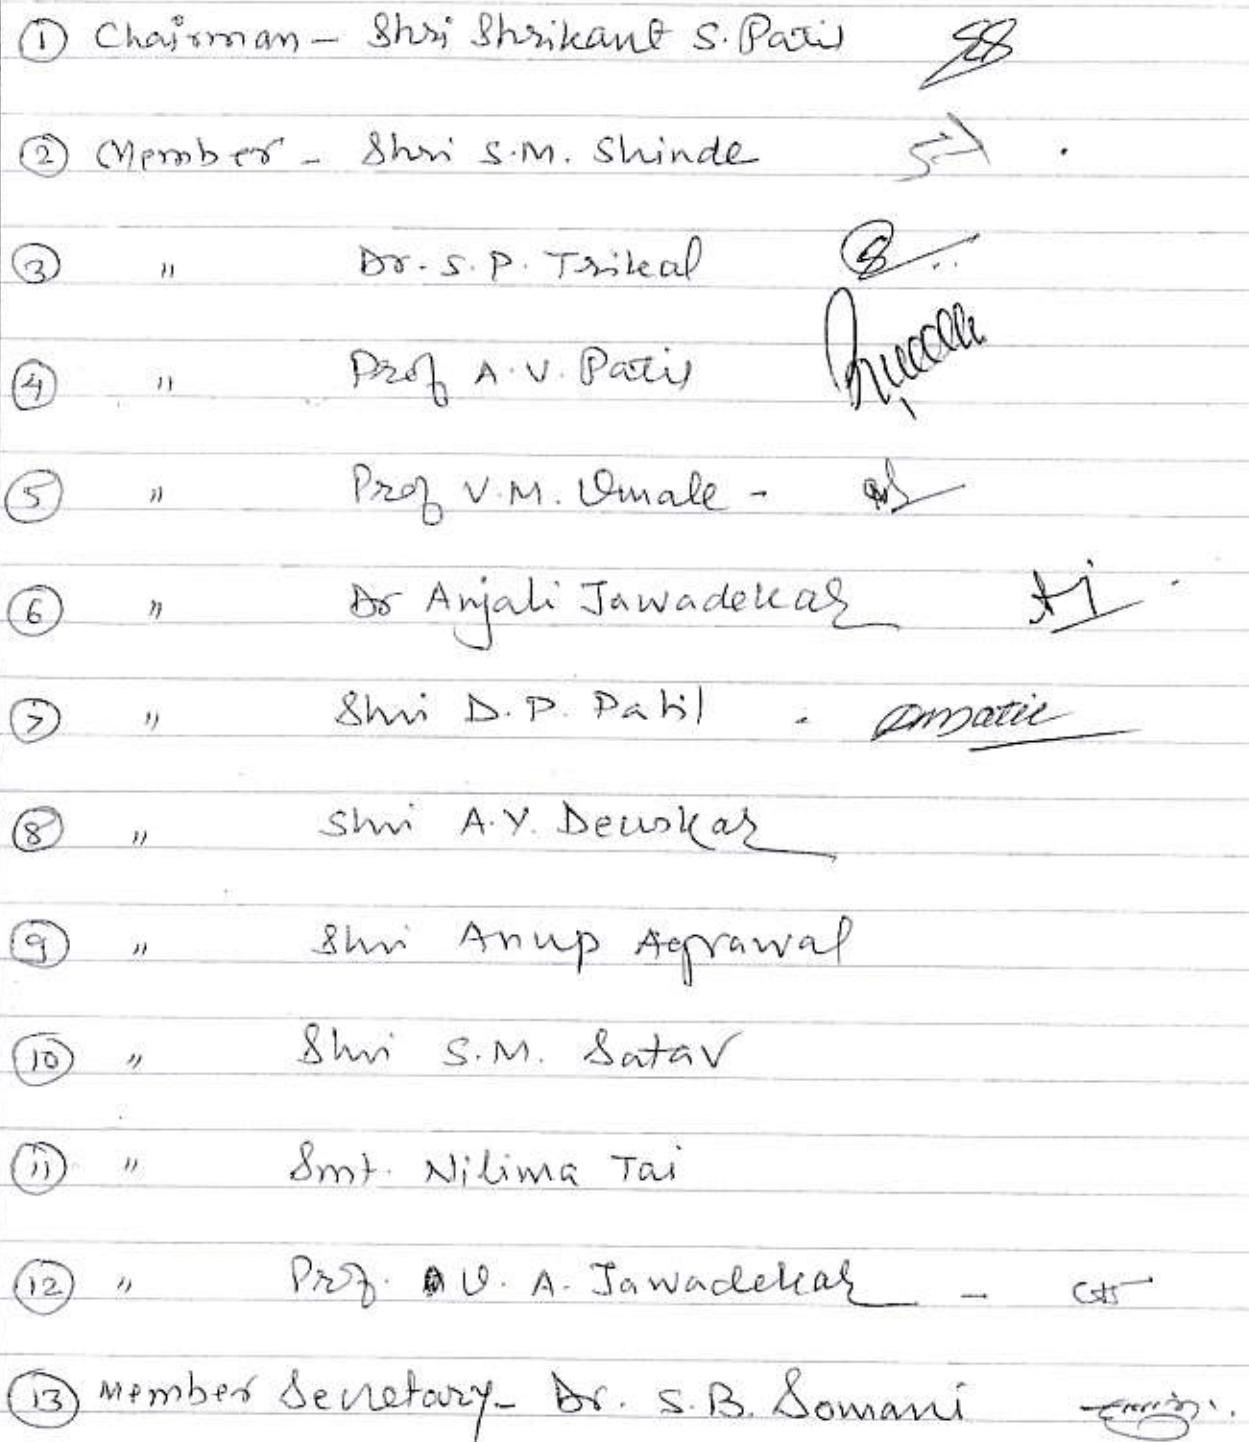 ① Chairman - Shri Shrikant S. Patil
② Member - Shri S.M. Shinde
③ " Dr. S. P. Trikal
④ " Prof A. V. Patil
⑤ " Prof V. M. Umale -
⑥ " Dr Anjali Jawadekar
⑦ " Shri D. P. Patil
⑧ " Shri A. Y. Deuskar
⑨ " Shri Anup Agrawal
⑩ " Shri S.M. Satav
⑪ " Smt. Nilima Tai
⑫ " Prof. U. A. Jawadekar -
⑬ Member Secretary - Dr. S. B. Somani